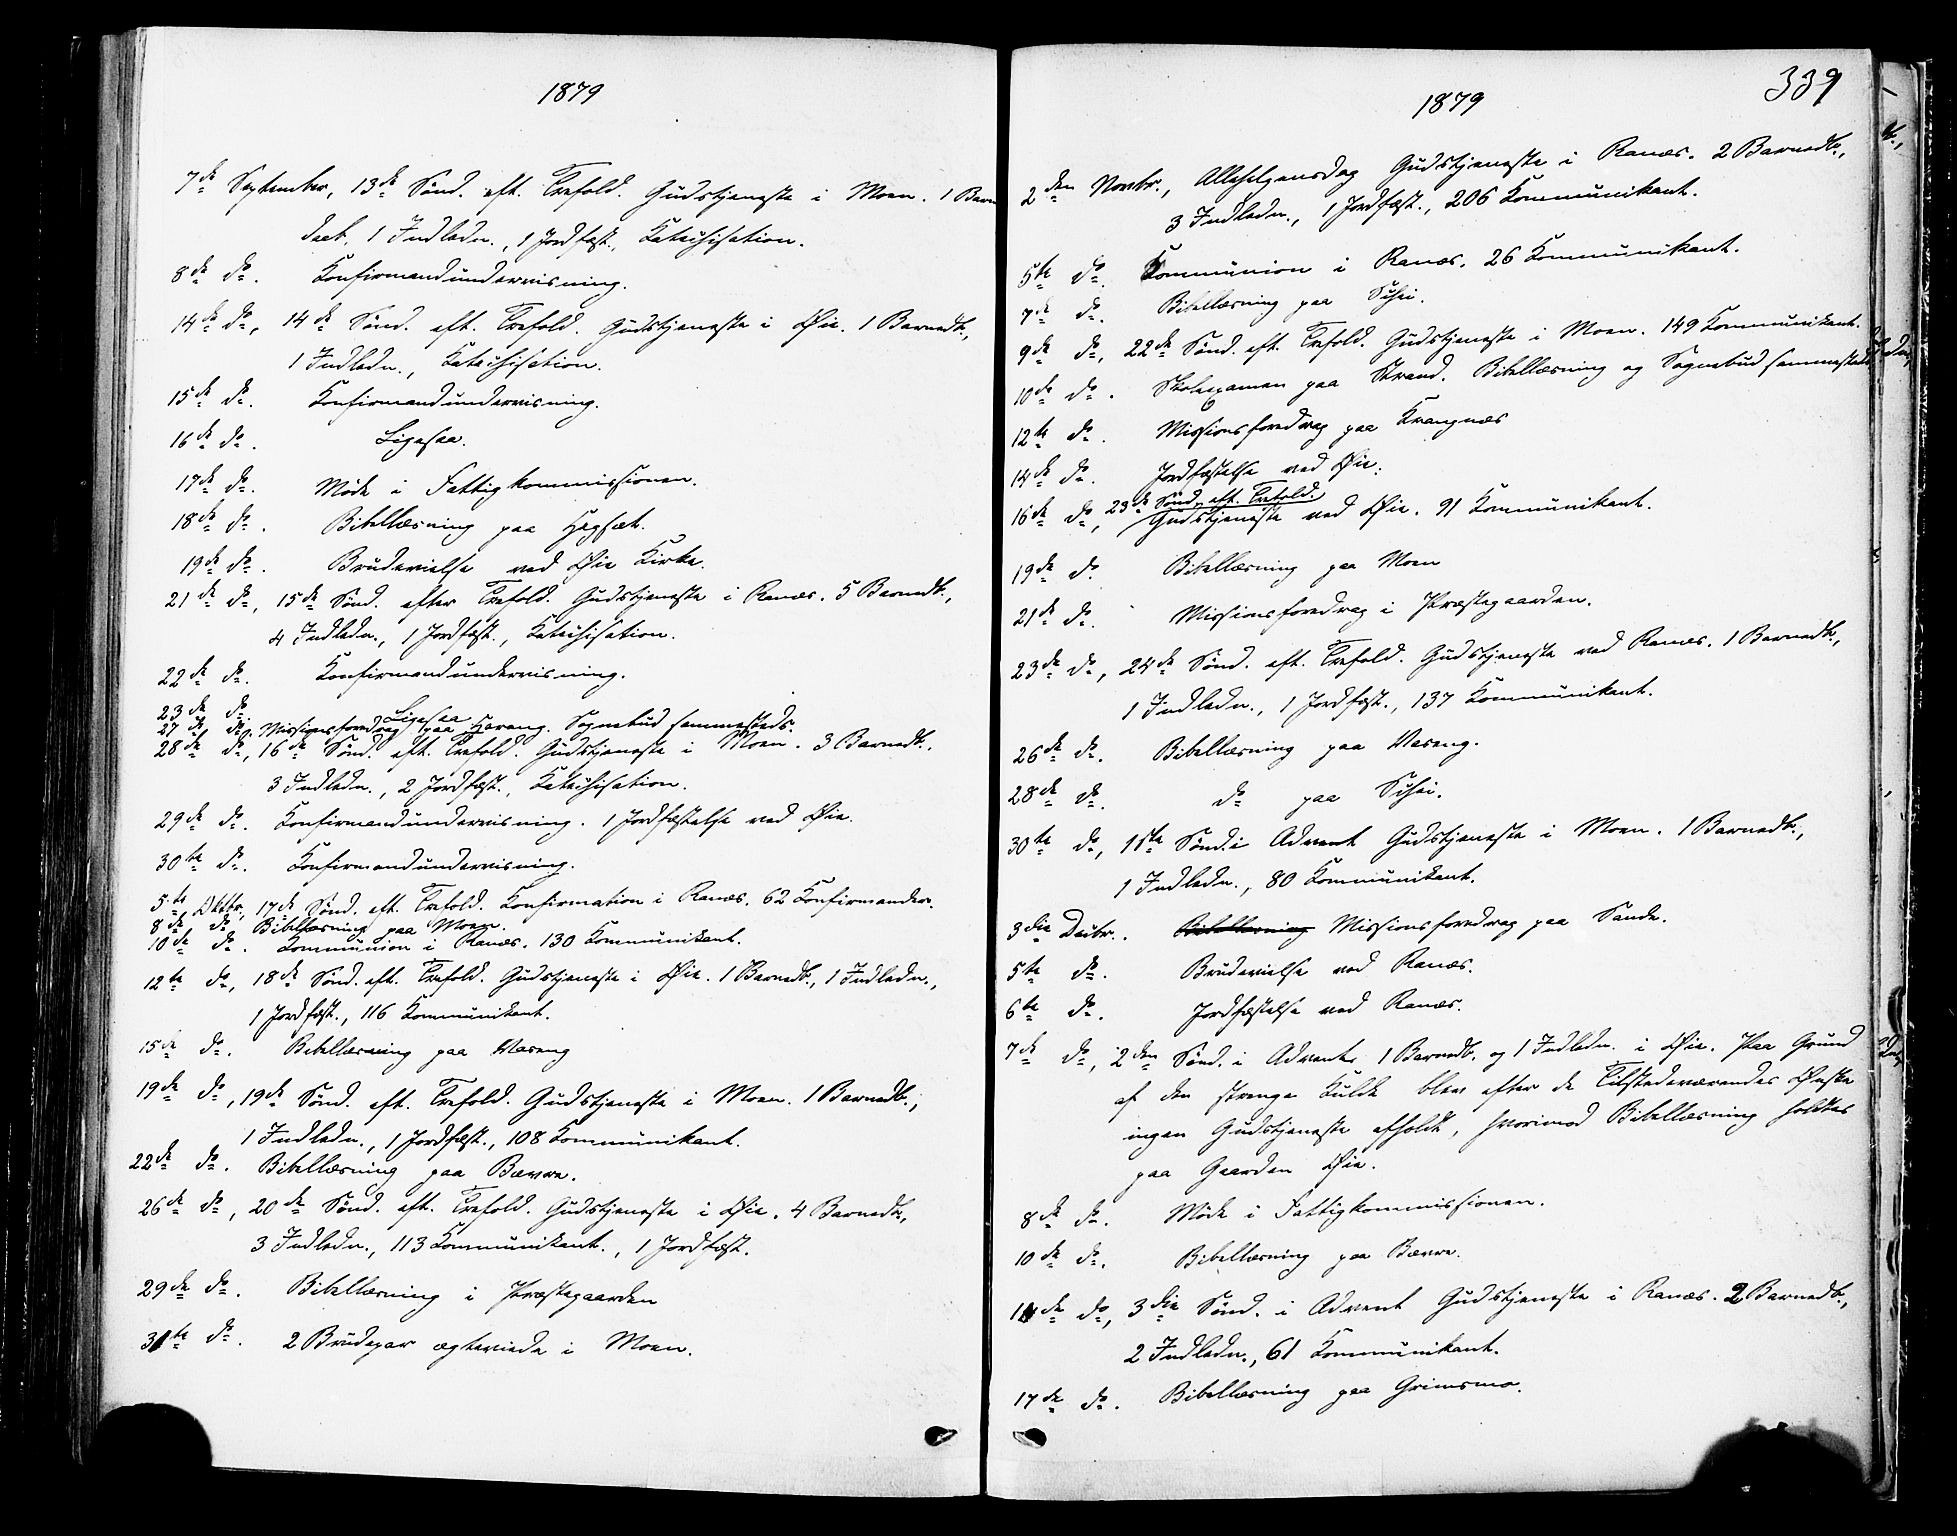 1879
7de September, 13de Sönd. eft. Trefold. Gudstjeneste i Moen. 1 Barn
daab, 1 Indledn., 1 Jordfæst., Katechisation.
8de do. Konfirmandundervisning.
14de do, 14de Sönd. eft. Trefold. Gudstjeneste i Øie. 1 Barnedb.,
1 Indledn., Katechisation.
15de do. Konfirmandundervisning.
16de do. Ligesaa.
17de do. Möde i Fattigkommissionen.
18de do. Bibellæsning paa Hegsæt.
19de do. Brudevielse ved Øie Kirke.
21de do, 15de Sönd. efter Trefold. Gudstjeneste i Ranæs. 5 Barnedb.,
4 Indledn., 1 Jordfæst., Katechisation.
22de do. Konfirmandundervisning.
23de do. Ligesaa
27de do. Missionsforedrag paa Harang. Sognebud sammesteds.
28de do, 16de Sönd. eft. Trefold. Gudstjeneste i Moen. 3 Barnedb.,
3 Indledn., 2 Jordfæst., Katechisation.
29de do. Konfirmandundervisning. 1 Jordfæstelse ved Øie.
30te do. Konfirmandundervisning.
5te Oktbr, 17de Sönd. eft. Trefold. Confirmation i Ranæs. 62 Confirmander.
8de do Bibellæsning paa Moen.
10de do. Kommunion i Ranæs. 130 Kommunikant.
12te do, 18de Sönd. eft. Trefold. Gudstjeneste i Øie. 1 Barnedb., 1 Indledn.,
1 Jordfæst., 116 Kommunikant.
15de do. Bibellæsning paa Vaseng
19de do, 19de Sönd. eft. Trefold. Gudstjeneste i Moen. 1 Barnedb.,
1 Indledn., 1 Jordfæst., 108 Kommunikant.
22de do. Bibellæsning paa Bævre.
26de do, 20de Sönd. eft. Trefold. Gudstjeneste i Øie. 4 Barnedb.,
3 Indledn., 113 Kommunikant., 1 Jordfæst.
29de do. Bibellæsning i Præstegaarden
31te do. 2 Brudepar ægteviede i Moen.
339
1879
2den Novbr., Allehelgensdag Gudstjeneste i Ranæs. 2 Barnedb.,
3 Indledn., 1 Jordfæst., 206 Kommunikant.
5te do. Kommunion i Ranæs. 26 Kommunikant.
7de do. Bibellæsning paa
9de do, 22de Sönd. eft. Trefold. Gudstjeneste i Moen. 149 Kommunikant.
10de do. Skolexamen paa Strand. Bibellæsning og Sognebud sammesteds
12te do. Missionsforedrag paa Kvangnæs
14de do. Jordfæstelse ved Øie.
16de do, 23de Sönd. eft. Trefold.
Gudstjeneste ved Øie. 91 Kommunikant.
19de do. Bibellæsning paa Moen
21de do. Missionsforedrag i Præstegaarden.
23de do, 24de Sönd. eft. Trefold. Gudstjeneste ved Ranæs. 1 Barnedb.,
1 Indledn., 1 Jordfæst., 137 Kommunikant.
26de do. Bibellæsning paa Vaseng.
28de do. do paa
30te do, 1ste Sönd. i Advent Gudstjeneste i Moen. 1 Barnedb.,
1 Indledn., 80 Kommunikant.
3die Decbr. Bibellæsning Missionsforedrag paa Sande.
5te do. Brudevielse ved Ranæs.
6te do. Jordfæstelse ved Ranæs.
7de do, 2den Sönd. i Advent. 1 Barnedb. og 1 Indledn. i Øie. Paa Grund
af den strenge Kulde blev efter de Tilstedeværendes Ønske
ingen Gudstjeneste afholdt, hvorimod Bibellæsning holdtes
paa Gaarden Øie.
8de do. Möde i Fattigkommissionen.
10de do. Bibellæsning paa Bævre.
14de do, 3die Sönd. i Advent Gudstjeneste i Ranæs. 2 Barnedb.,
2 Indledn., 61 Kommunikant.
17de do. Bibellæsning paa Grimsmo.